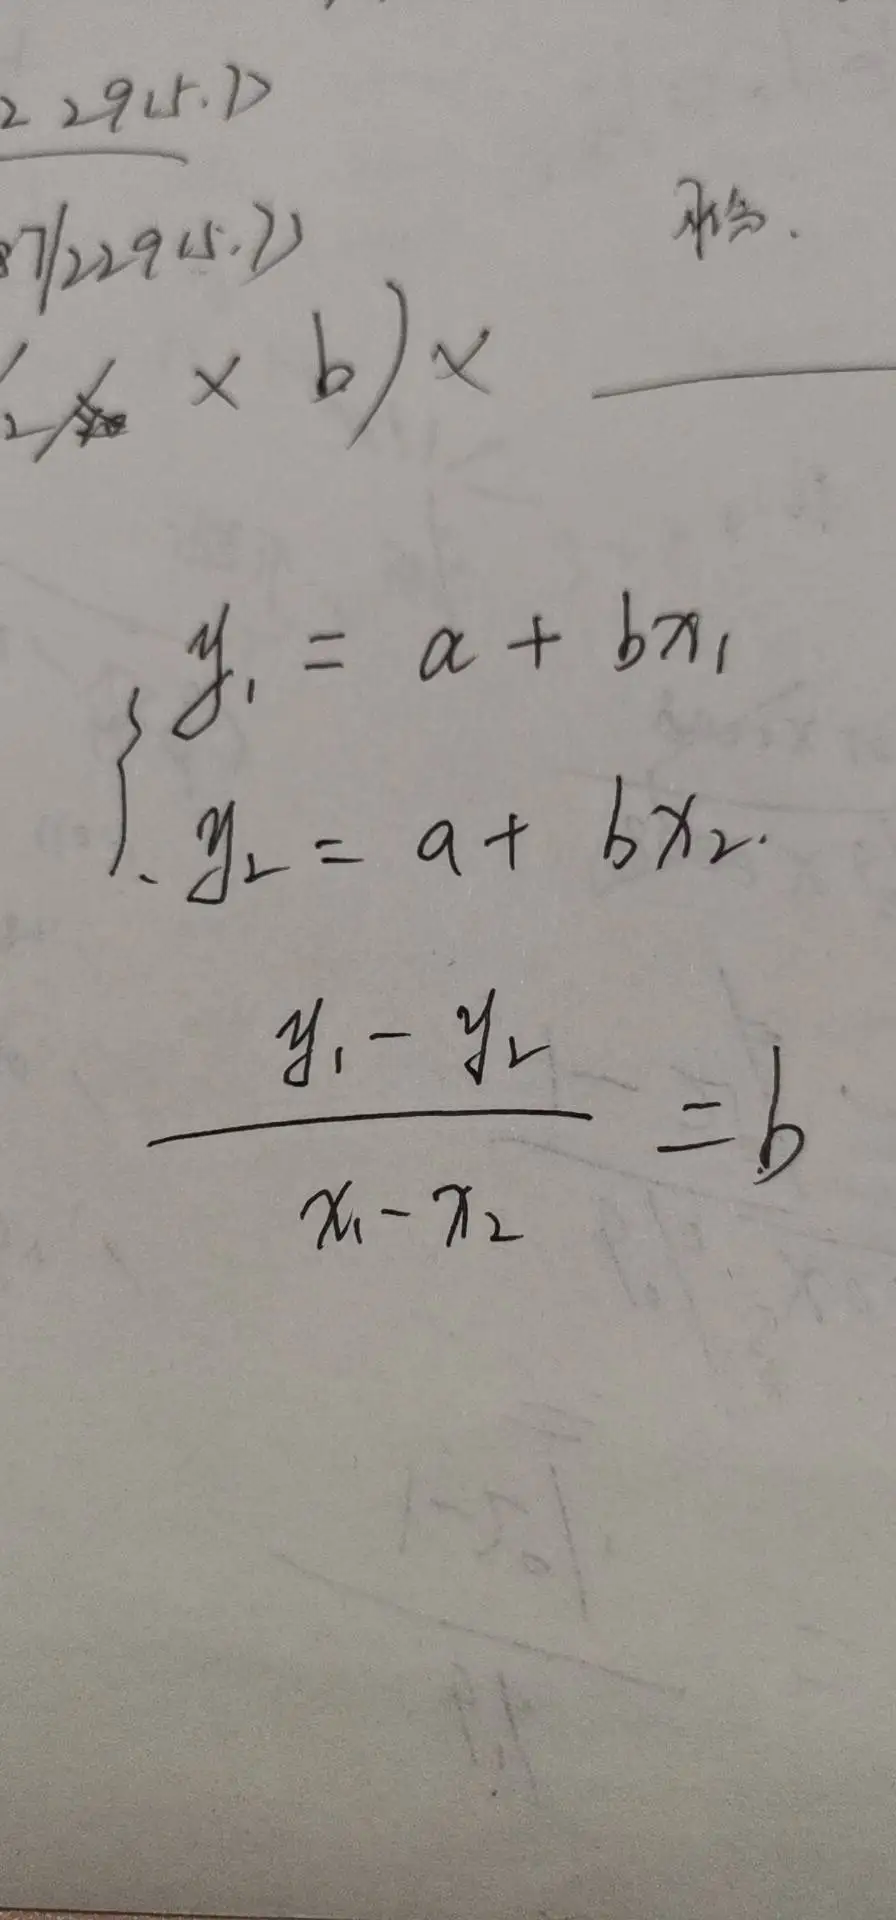 2295.7)
87/2295.7)
× b) ×
y₁ = a + bx₁
y₂ = a + bx₂.
y₁ - y₂
x₁ - x₂
= b